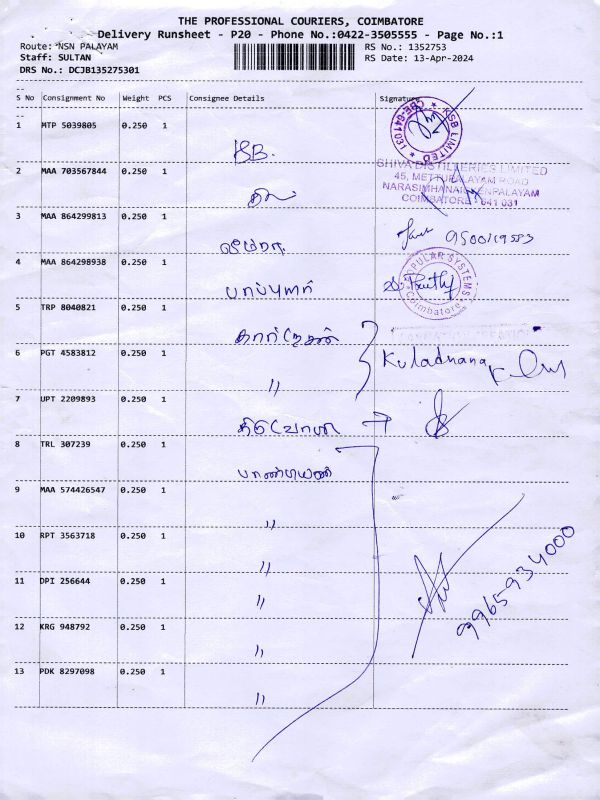 THE PROFESSIONAL COURIERS, COIMBATORE
Delivery Runsheet - P20 - Phone No.:0422-3505555 - Page No.:1
Route: NSN PALAYAM
RS No.: 1352753
Staff: SULTAN
RS Date: 13-Apr-2024
DRS No.: DCJB135275301
S No Consignment No Weight PCS Consignee Details Signature
1 MTP 5039805 0.250 1
KSB.
KSB LIMITED
CBE-641031
2 MAA 703567844 0.250 1
SHIVA DISTILLERIES LIMITED
45, METTUPALAYAM ROAD
COIMBATORE - 641 031
3 MAA 864299813 0.250 1
4 MAA 864298938 0.250 1
பாப்புலர்
POPULAR SYSTEMS
Coimbatore
5 TRP 8040821 0.250 1
6 PGT 4583812 0.250 1
〃
Kuladhana
7 UPT 2209893 0.250 1
8 TRL 307239 0.250 1
பாண்டியன்
9 MAA 574426547 0.250 1
〃
10 RPT 3563718 0.250 1
〃
11 DPI 256644 0.250 1
〃
9965934000
12 KRG 948792 0.250 1
〃
13 PDK 8297098 0.250 1
〃